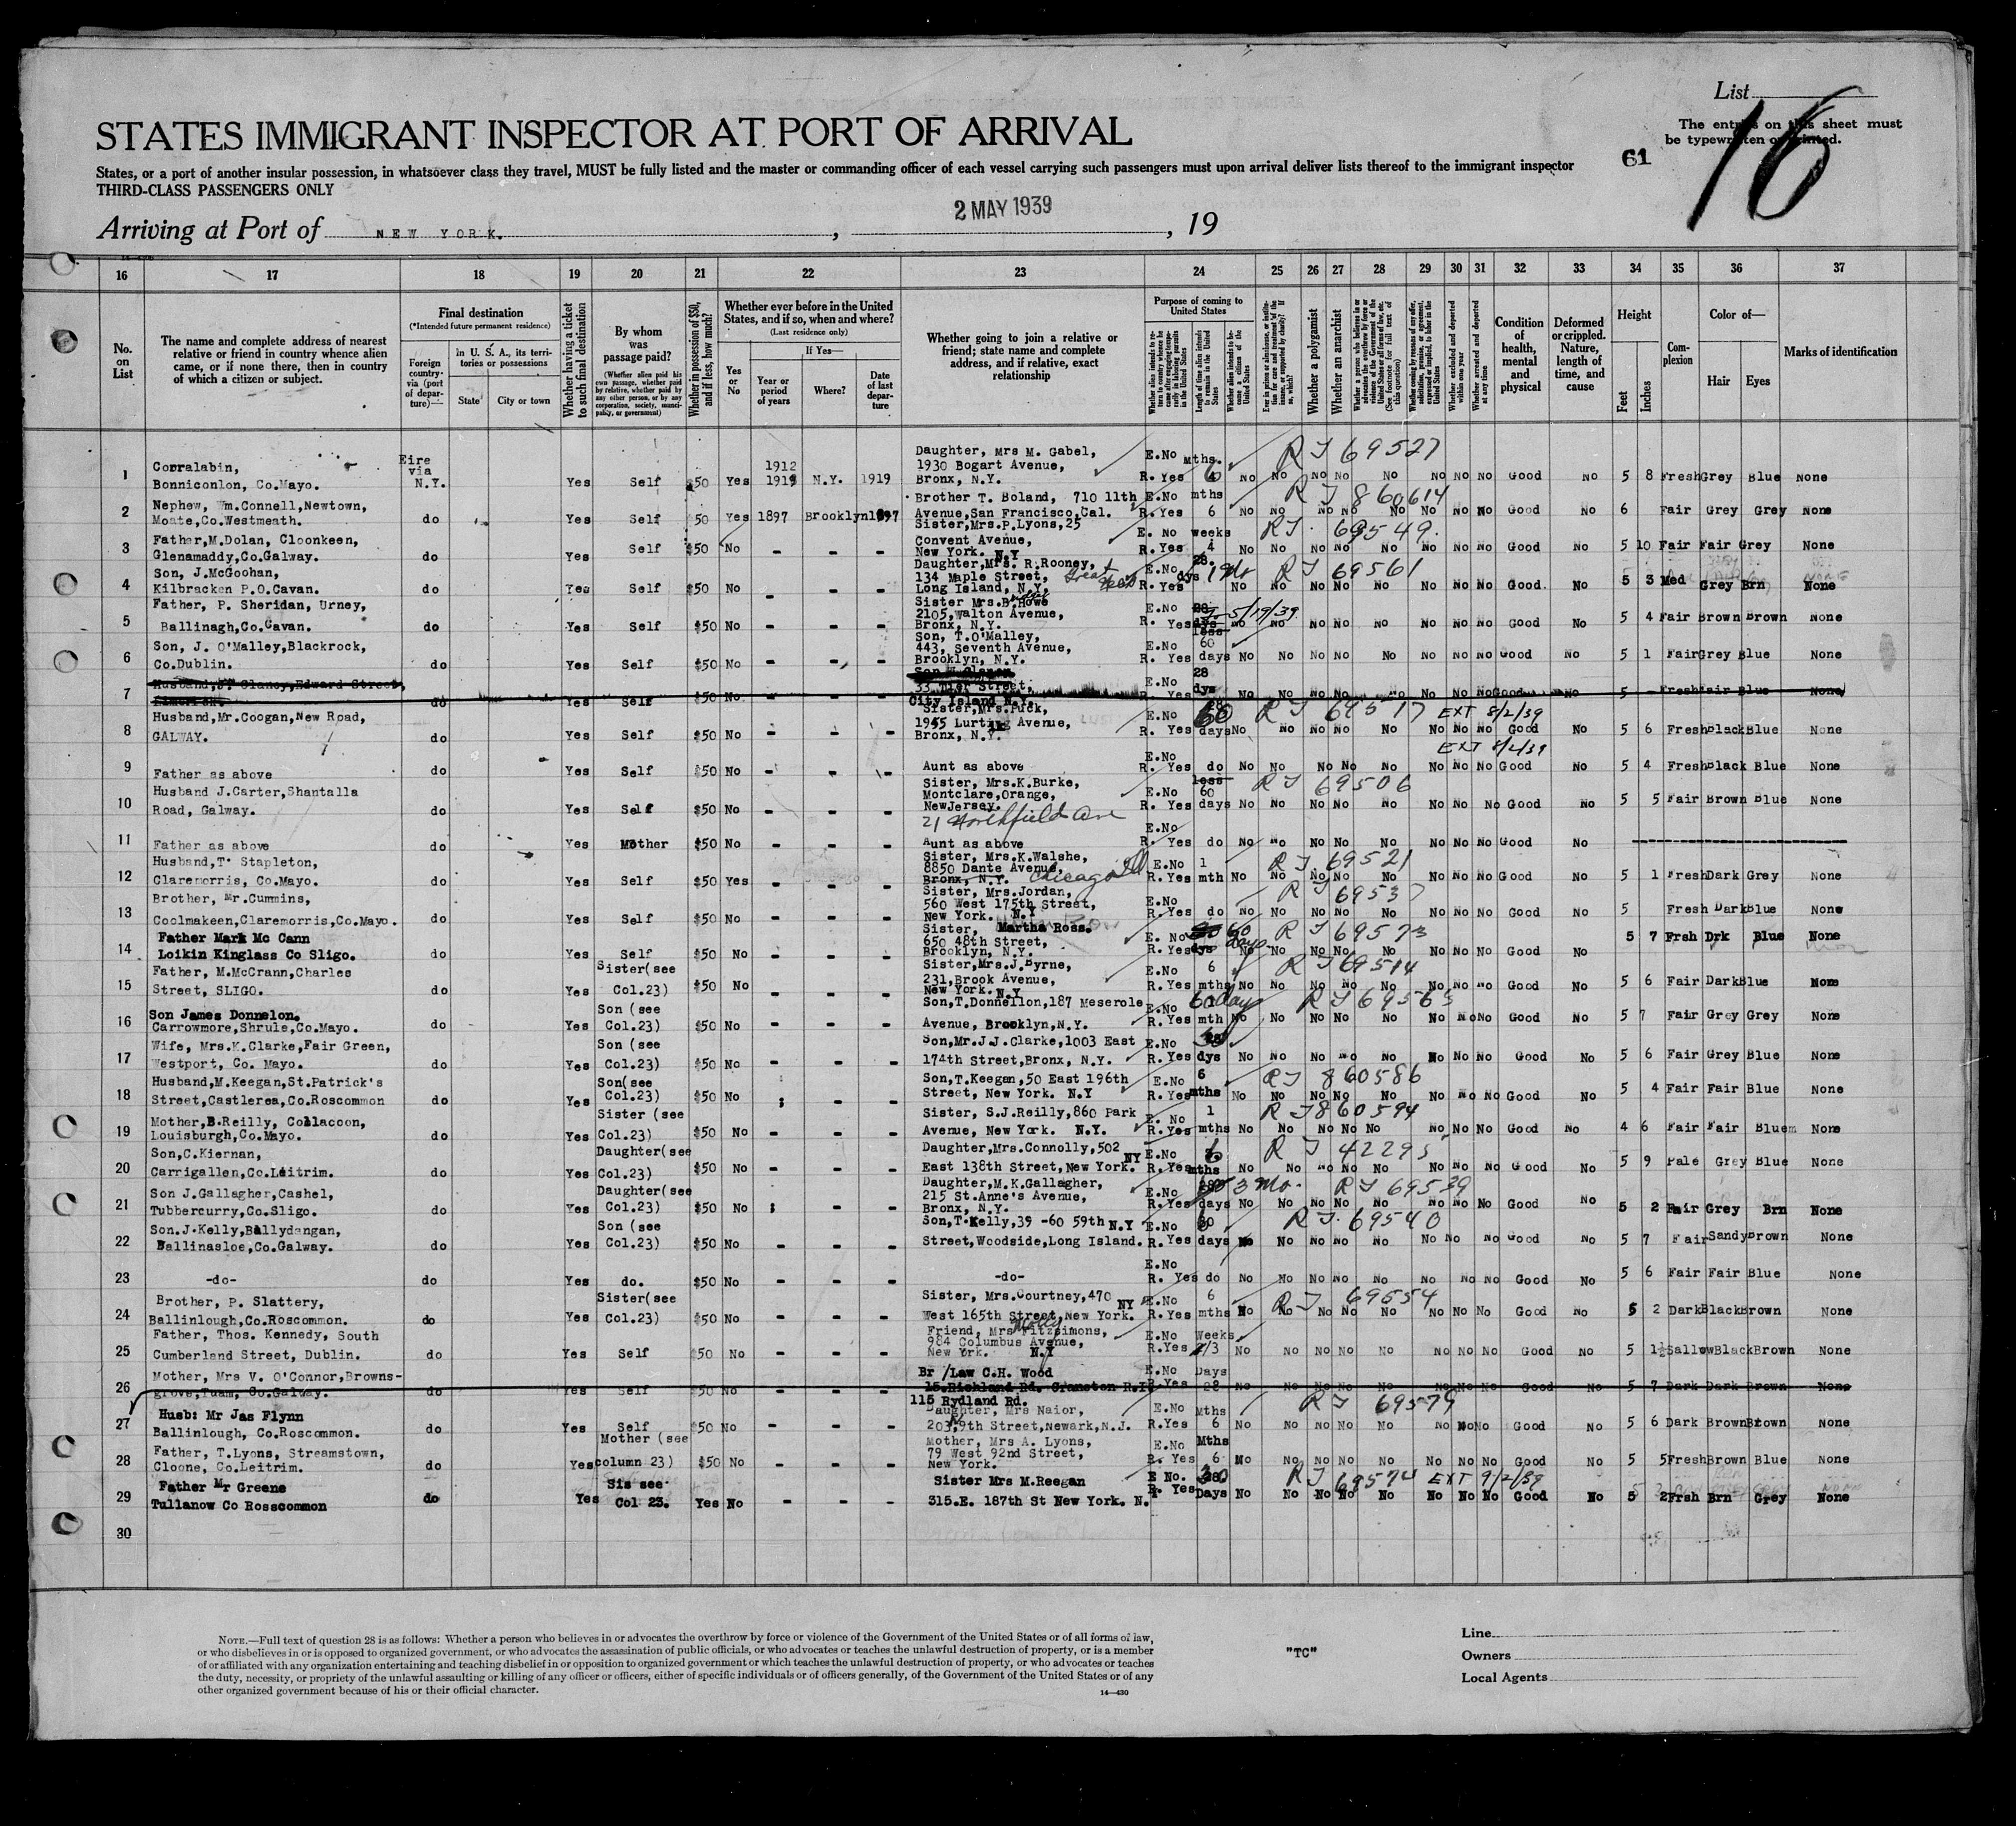 List
16
The entries on this sheet must
be typewritten or printed.
61
STATES IMMIGRANT INSPECTOR AT PORT OF ARRIVAL
States, or a port of another insular possession, in whatsoever class they travel, MUST be fully listed and the master or commanding officer of each vessel carrying such passengers must upon arrival deliver lists thereof to the immigrant inspector
THIRD-CLASS PASSENGERS ONLY
Arriving at Port of NEW YORK. , 2 MAY 1939 , 19
16 17 18 19 20 21 22 23 24 25 26 27 28 29 30 31 32 33 34 35 36 37
No. on List
The name and complete address of nearest relative or friend in country whence alien came, or if none there, then in country of which a citizen or subject.
Final destination
(*Intended future permanent residence)
Foreign country via (port of departure)
In U. S. A., its territories or possessions
State
City or town
Whether having a ticket to such final destination
By whom was passage paid?
(Whether alien paid his own passage, whether paid by relative, whether paid by any other person, or by any corporation, society, municipality, or government)
Whether in possession of $50, and if less, how much?
Whether ever before in the United States, and if so, when and where?
(Last residence only)
Yes or No
If Yes—
Year or period of years
Where?
Date of last departure
Whether going to join a relative or friend; state name and complete address, and if relative, exact relationship
Purpose of coming to United States
Whether a polygamist
Whether an anarchist
Condition of health, mental and physical
Deformed or crippled. Nature, length of time, and cause
Height
Feet
Inches
Complexion
Color of—
Hair
Eyes
Marks of identification
1 Corralabin, Bonniconlon, Co.Mayo. Eire via N.Y. Yes Self $50 Yes 1912 1919 N.Y. 1919 Daughter, Mrs M. Gabel, 1930 Bogart Avenue, Bronx, N.Y. E.No R. Yes Mths. 6 No No No No No No No No Good No 5 8 Fresh Grey Blue None
RT 69527
2 Nephew, Wm.Connell,Newtown, Moate,Co.Westmeath. do Yes Self $50 Yes 1897 Brooklyn 1897 Brother T. Boland, 710 11th Avenue,San Francisco,Cal. E.No R.Yes mths 6 No No No No No No No No Good No 6 Fair Grey Grey None
RT 860614
3 Father,M.Dolan, Cloonkeen, Glenamaddy,Co.Galway. do Yes Self $50 No - - - Sister,Mrs.P.Lyons,25 Convent Avenue, New York. N.Y E. No R. Yes weeks 4 No No No No No No No No Good No 5 10 Fair Fair Grey None
RT. 69549.
4 Son, J.McGoohan, Kilbracken P.O.Cavan. do Yes Self $50 No - - - Daughter,Mrs. R.Rooney, 134 Maple Street, Great Neck Long Island, N.Y. E.No R. Yes 28. dys 1 Mo No No No No No No No No Good. No 5 3 Med Grey Brn None
RT 69561
5 Father, P. Sheridan, Urney, Ballinagh,Co.Cavan. do Yes Self $50 No - - - Sister Mrs.B.Howe 2105,Walton Avenue, Bronx, N.Y. E.No R. Yes 5/19/39 No No No No No No No No Good No 5 4 Fair Brown Brown None
6 Son, J. O'Malley,Blackrock, Co.Dublin. do Yes Self $50 No - - - Son, T.O'Malley, 443, Seventh Avenue, Brooklyn, N.Y. E.No R. Yes 60 days No No No No No No No No Good No 5 1 Fair Grey Blue None
7 Husband,J. Clancy,Edward Street, Limerick. do Yes Self $50 No Son W.Clancy 33 Tier Street, City Island N.Y. E.No R. Yes 28 dys No No No No No No No No Good No 5 - Fresh Fair Blue None
8 Husband,Mr.Coogan,New Road, GALWAY. do Yes Self $50 No - - - Sister,Mrs.Puck, 1955 Lurting Avenue, Bronx, N.Y. E.No R. Yes 60 days No No No No No No No No Good No 5 6 Fresh Black Blue None
RT 69517 EXT 8/2/39
9 Father as above do Yes Self $50 No - - - Aunt as above E.No R. Yes do No No No No No No No No Good No 5 4 Fresh Black Blue None
EXT 8/2/39
10 Husband J.Carter,Shantalla Road, Galway. do Yes Self $50 No - - - Sister, Mrs.K.Burke, Montclare,Orange, NewJersey. 21 Northfield Ave E.No R. Yes 60 days No No No No No No No No Good No 5 5 Fair Brown Blue None
RT 69506
11 Father as above do Yes Mother $50 No - - - Aunt as above E.No R. Yes do No No No No No No No No Good No
12 Husband,T. Stapleton, Claremorris, Co.Mayo. do Yes Self $50 Yes - - - Sister, Mrs.K.Walshe, 8850 Dante Avenue, Bronx, N.Y. Chicago Ill E.No R.Yes 1 mth No No No No No No No No Good No 5 1 Fresh Dark Grey None
RT 69521
13 Brother, Mr.Cummins, Coolmakeen,Claremorris,Co.Mayo. do Yes Self $50 No - - - Sister, Mrs.Jordan, 560 West 175th Street, New York. N.Y E.No R.Yes do No No No No No No No No Good No 5 Fresh Dark Blue None
RT 69537
14 Father Mark Mc Cann Loikin Kinglass Co Sligo. do Yes Self $50 No - - - Sister, Martha Ross. 650 48th Street, Brooklyn, N.Y. E. No R.Yes 60 days No No No No No No No No Good No 5 7 Frsh Drk Blue None
RT 69573
15 Father, M.McCrann,Charles Street, SLIGO. do Yes Sister(see Col.23) $50 No - - - Sister,Mrs.J.Byrne, 231,Brook Avenue, New York. N.Y E.No R.Yes 6 mths No No No No No No No No Good No 5 6 Fair Dark Blue None
RT 69514
16 Son James Donnelon. Carrowmore,Shrule,Co.Mayo. do Yes Son (see Col.23) $50 No - - - Son,T.Donnellon,187 Meserole Avenue, Brooklyn,N.Y. E.No R.Yes 60 day mth No No No No No No No No Good No 5 7 Fair Grey Grey None
RT 69565
17 Wife, Mrs.K.Clarke,Fair Green, Westport, Co. Mayo. do Yes Son (see Col.23) $50 No - - - Son,Mr.J.J.Clarke,1003 East 174th Street,Bronx, N.Y. E.No R.Yes dys No No No No No No No No Good No 5 6 Fair Grey Blue None
18 Husband,M.Keegan,St.Patrick's Street,Castlerea,Co.Roscommon do Yes Son(see Col.23) $50 No - - Son,T.Keegan,50 East 196th Street, New York. N.Y E.No R.Yes 6 mths No No No No No No No No Good No 5 4 Fair Fair Blue None
RT 860586
19 Mother,B.Reilly, Collacoon, Louisburgh,Co.Mayo. do Yes Sister (see Col.23) $50 No - - - Sister, S.J.Reilly,860 Park Avenue, New York. N.Y. E. No R.Yes 1 mths No No No No No No No No Good No 4 6 Fair Fair Blue None
RT 860594
20 Son,C.Kiernan, Carrigallen,Co.Leitrim. do Yes Daughter(see Col.23) $50 No - - - Daughter,Mrs.Connolly,502 East 138th Street,New York. NY E.No R.Yes 6 mths No No No No No No No No Good No 5 9 Pale Grey Blue None
RT 42295
21 Son J.Gallagher,Cashel, Tubbercurry,Co.Sligo. do Yes Daughter(see Col.23) $50 No - - Daughter,M.K.Gallagher, 215 St.Anne's Avenue, Bronx, N.Y. E.No R.Yes days 3 Mo. No No No No No No No No Good No 5 2 Fair Grey Brn None
RT 69539
22 Son.J.Kelly,Ballydangan, Ballinasloe,Co.Galway. do Yes Son (see Col.23) $50 No - - - Son,T.Kelly,39 -60 59th N.Y Street,Woodside,Long Island. E.No R.Yes 60 days No No No No No No No No Good No 5 7 Fair Sandy Brown None
RT. 69540
23 -do- do Yes do. $50 No - - - -do- E.No R. Yes do No No No No No No No No Good No 5 6 Fair Fair Blue None
24 Brother, P. Slattery, Ballinlough,Co.Roscommon. do Yes Sister(see Col.23) $50 No - - - Sister, Mrs.Courtney,470 West 165th Street,New York. NY E.No R.Yes 6 mths No No No No No No No No Good No 5 2 Dark Black Brown None
RT 69554
25 Father, Thos. Kennedy, South Cumberland Street, Dublin. do Yes Self $50 No - - - Friend, Mrs Molly Fitzsimons, 984 Columbus Avenue, New York. N.Y E.No R.Yes Weeks 2/3 No No No No No No No No Good No 5 1½ Sallow Black Brown None
26 Mother, Mrs V. O'Connor,Brownsgrove,Tuam, Co.Galway. do Yes Self $50 No Br /Law C.H. Wood 15.Richland Rd. Cranston R.I. 115 Rydland Rd. E.No R.Yes Days 28 No No No No No No No No Good No 5 7 Dark Dark Brown None
27 Husb: Mr Jas Flynn Ballinlough, Co.Roscommon. do Yes Self $50 No - - - Daughter, Mrs Naior, 203,9th Street,Newark,N.J. E.No R.Yes Mths 6 No No No No No No No No Good No 5 6 Dark Brown Brown None
RT 69579
28 Father, T.Lyons, Streamstown, Cloone, Co.Leitrim. do Yes Mother (see column 23) $50 No - - - Mother, Mrs A. Lyons, 79 West 92nd Street, New York. E.No R. Yes Mths 6 No No No No No No No No Good No 5 5 Fresh Brown Blue None
29 Father Mr Greene Tullanow Co Rosscommon do Yes Sis see Col 23. Yes No - - - Sister Mrs M.Reegan 315.E. 187th St New York. N. E No. R. Yes Days No No No No No No No No Good No 5 2 Frsh Brn Grey None
RT 69574 EXT 9/2/39
30
NOTE.—Full text of question 28 is as follows: Whether a person who believes in or advocates the overthrow by force or violence of the Government of the United States or of all forms of law,
or who disbelieves in or is opposed to organized government, or who advocates the assassination of public officials, or who advocates or teaches the unlawful destruction of property, or is a member
of or affiliated with any organization entertaining and teaching disbelief in or opposition to organized government or which teaches the unlawful destruction of property, or who advocates or teaches
the duty, necessity, or propriety of the unlawful assaulting or killing of any officer or officers, either of specific individuals or of officers generally, of the Government of the United States or of any
other organized government because of his or their official character.
14—430
"TC"
Line
Owners
Local Agents